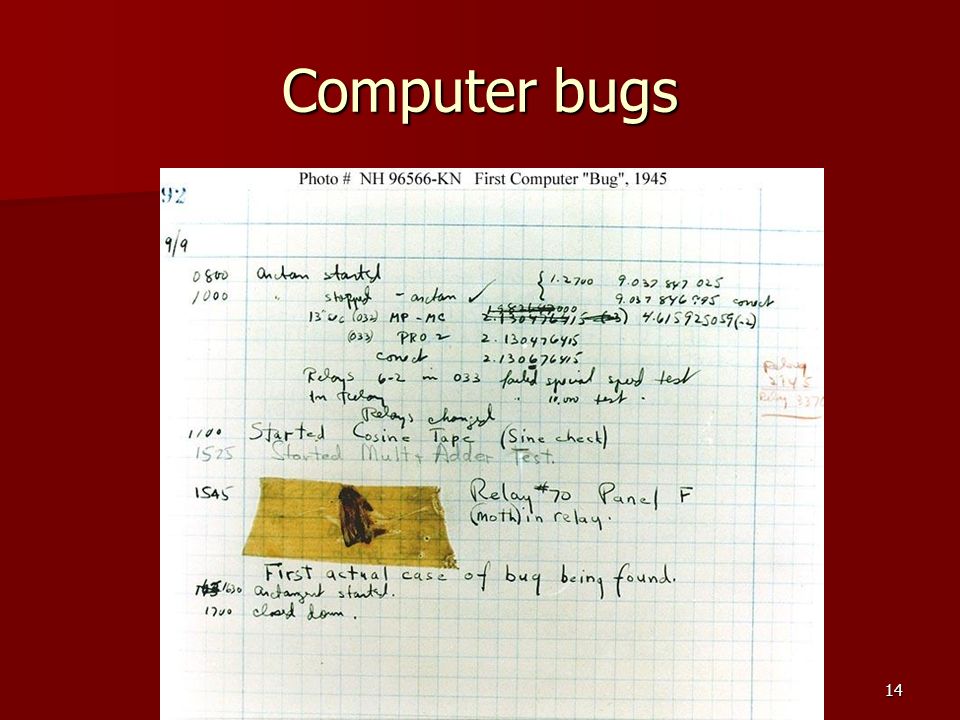 Computer bugs
Photo # NH 96566-KN First Computer "Bug", 1945
92
9/9
0800 antan started { 1.2700 9.037 847 025
1000 " stopped - antan ✓ 9.037 846 995 conect
(032) MP - MC 2.130476415 4.615925059(-2)
(033) PRO 2 2.130476415
conect 2.130676415
Relays 6-2 in 033 failed special speed test
In Relay " 10.000 test .
Relay
2145
Relay 3370
Relays changed
1100 Started Cosine Tape (Sine check)
1525 Started Mult + Adder Test.
1545 Relay #70 Panel F
(moth) in relay.
First actual case of bug being found.
1630 antangent started.
1700 closed down .
14